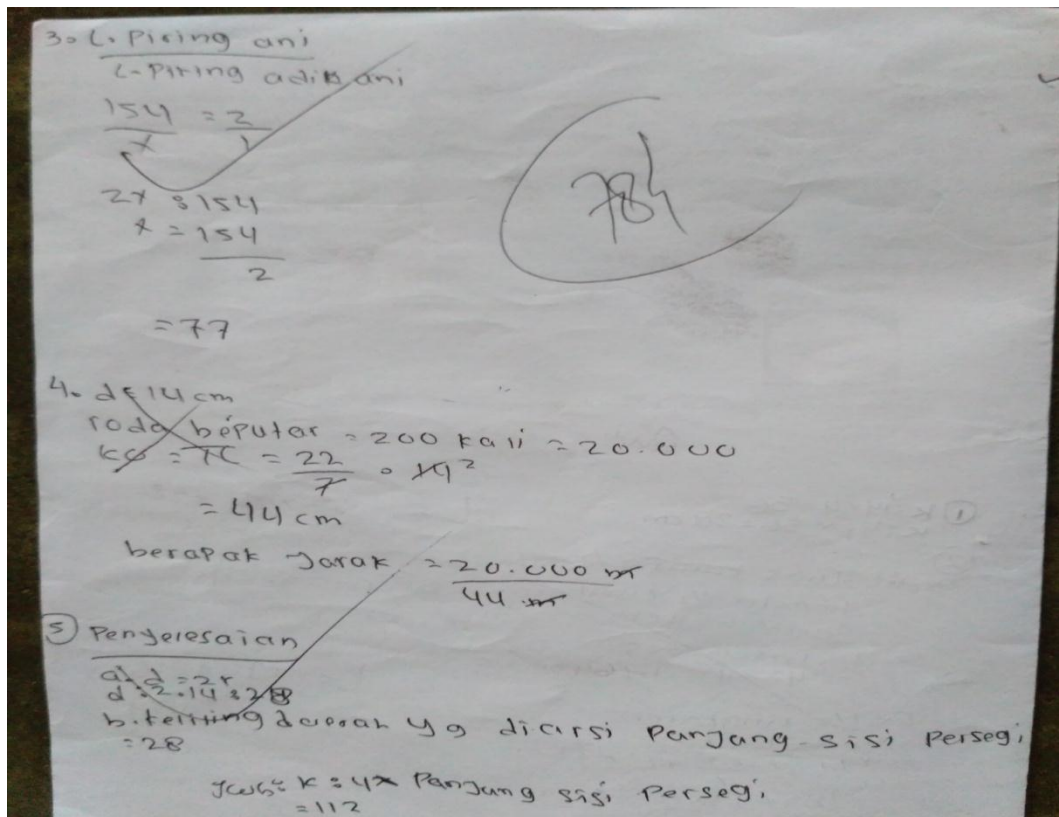 3. L. Piring ani
L. Piring adik ani
154 = 2
x 1
2x = 154
x = 154
2
= 77
784
4. d = 14 cm
roda beputar = 200 kali = 20.000
= 22
7 . 14 2
= 44 cm
berapak Jarak = 20.000 m
44 m
5 Penyelesaian
a. d = 2r
d = 2.14 = 28
b. daerah yg diarsi Panjang sisi Persegi
= 28
Jwb = K = 4x Panjang sisi Persegi
= 112